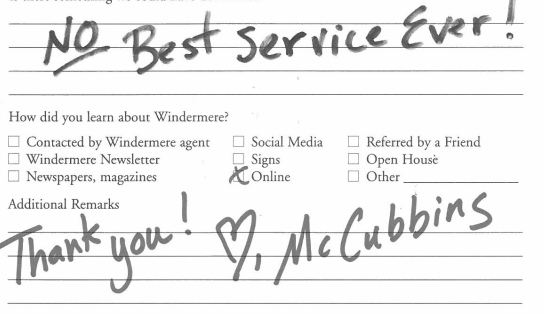 NO Best Service Ever!
How did you learn about Windermere?
☐ Contacted by Windermere agent ☐ Social Media ☐ Referred by a Friend
☐ Windermere Newsletter ☐ Signs ☐ Open House
☐ Newspapers, magazines ☒ Online ☐ Other
Additional Remarks
Thank you! ♡, McCubbins